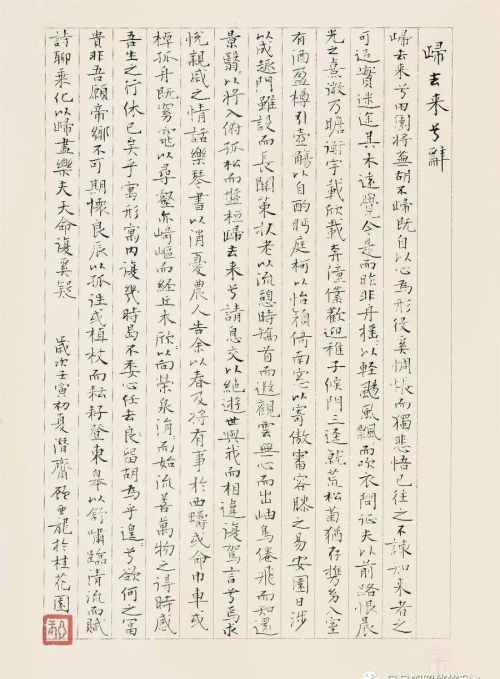 歸去来兮辭
歸去来兮田園將蕪胡不歸既自以心為形役奚惆悵而獨悲悟已往之不諫知来者之
可追實迷途其未遠覺今是而昨非舟搖〻以輕颺風飄〻而吹衣問征夫以前路恨晨
光之熹微乃瞻衡宇載欣載奔僮僕歡迎稚子候門三逕就荒松菊猶存携幼入室
有酒盈樽引壺觴以自酌眄庭柯以怡顏倚南窓以寄傲審容膝之易安園日涉
以成趣門雖設而長關策扶老以流憩時矯首而遐觀雲無心而出岫鳥倦飛而知還
景翳〻以將入俯孤松而盤桓歸去来兮請息交以絕遊世與我而相違復駕言兮焉求
悅親戚之情話樂琴書以消憂農人告余以春及將有事於西疇或命巾車或
棹孤舟既窈窕以尋壑亦崎嶇而經丘木欣〻以向榮泉涓〻而始流善萬物之得時感
吾生之行休已矣乎寓形寓內復幾時曷不委心任去良留胡為乎遑〻兮欲何之富
貴非吾願帝鄉不可期懷良辰以孤往或植杖而耘耔登東皋以舒嘯臨清流而賦
詩聊乘化以歸盡樂夫天命復奚疑 歲次壬寅初夏潛齋顧亜龍於桂花園